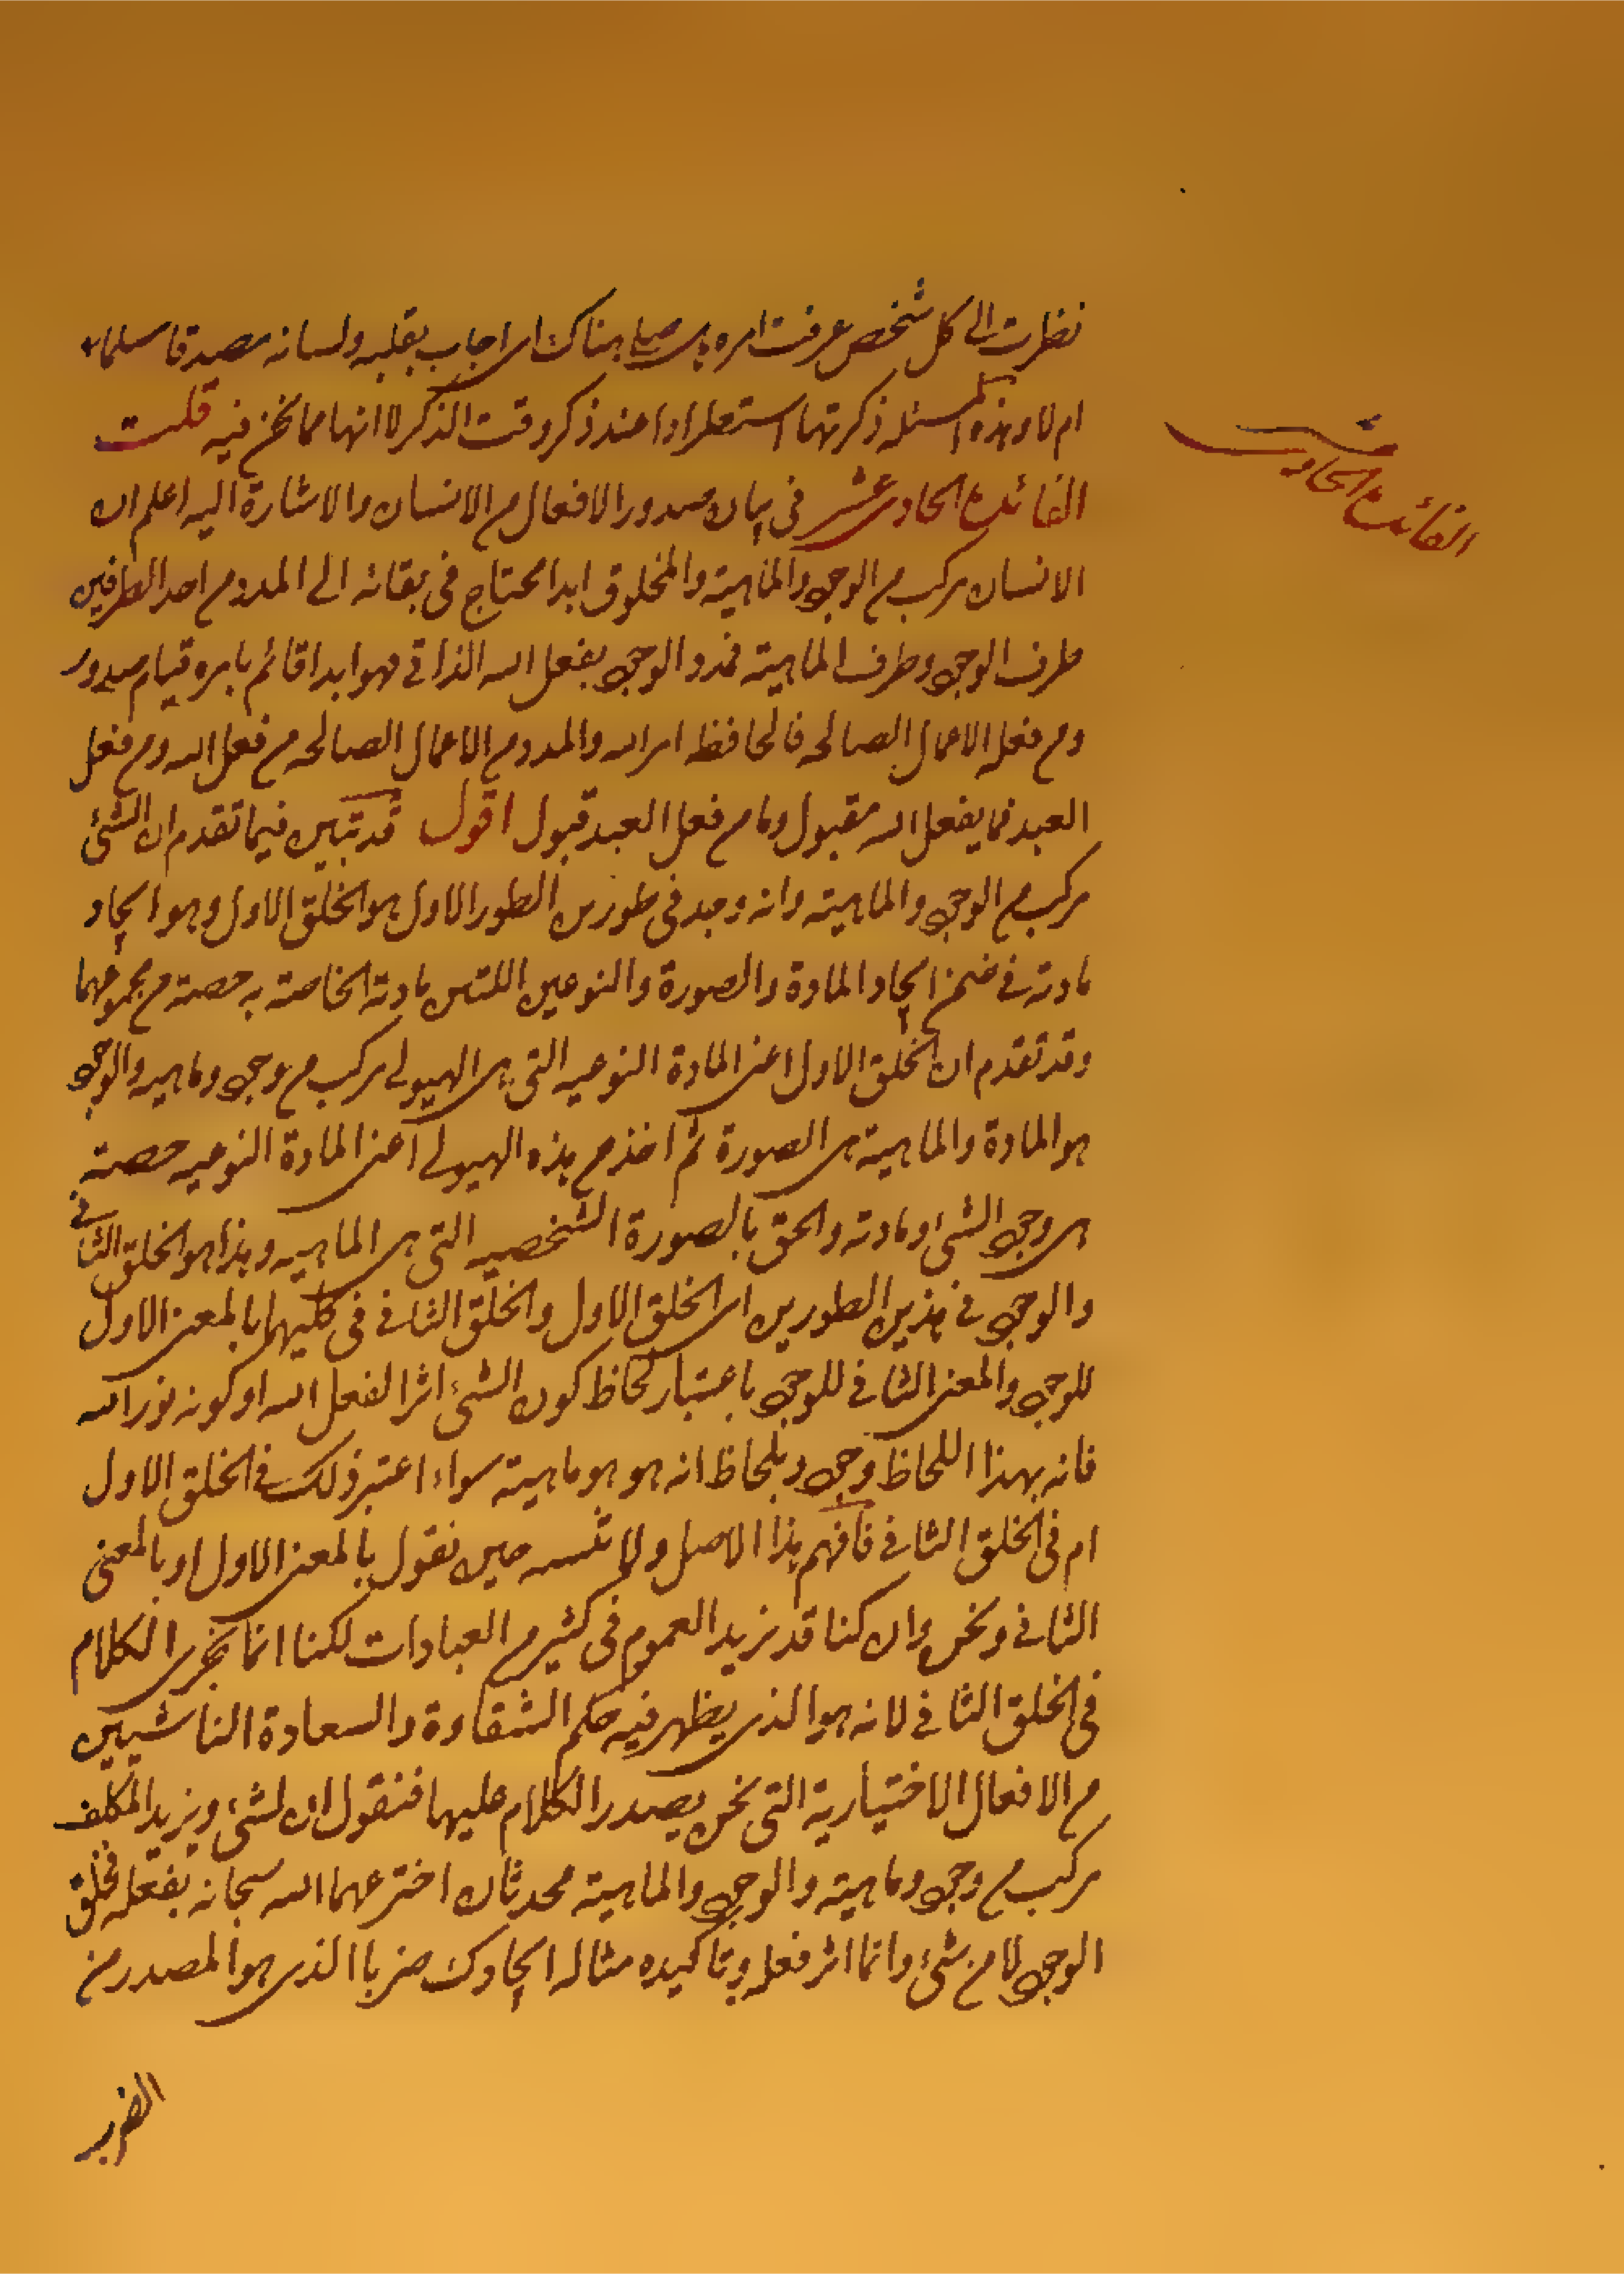 نظرت الى كل شخص عرفت امره هل صلى هناك اى اجاب بقلبه ولسانه مصدقا مسلما
ام لا وهذه المسئله ذكرتها استطرادا عند ذكر وقت الذكر لا انها مما نحن فيه قلت
الفائدة الحادى عشر فى بيان صدور الافعال من الانسان والاشارة اليه اعلم ان
الانسان مركب من الوجود والماهية والمخلوق ابدا محتاج فى بقائه الى المدد من احد الطرفين
طرف الوجود وطرف الماهية فمدد الوجود بفعل الله الذاتى فهو ابدا قائم بامره قيام صدور
ومن فعله الاعمال الصالحه فالحافظ امر الله والمدد من الاعمال الصالحه من فعل الله ومن فعل
العبد فما بفعل الله مقبول وما من فعل العبد قبول اقول قد تبين فيما تقدم ان الشئ
مركب من الوجود والماهية وانه وجد فى طورين الطور الاول هو الخلق الاول وهو ايجاد
مادته فى ضمن ايجاد المادة والصورة والنوعين اللتين مادته الخاصة به حصة من مجموعهما
وقد تقدم ان الخلق الاول اعنى المادة النوعيه التى هى الهيولى مركب من وجود وماهيه والوجود
هو المادة والماهية هى الصورة ثم اخذ من هذه الهيولى اعنى المادة النوعيه حصة
هى وجود الشئ ومادته والحق بالصورة الشخصيه التى هى الماهيه وهذا هو الخلق الثانى
والوجود فى هذين الطورين اى الخلق الاول والخلق الثانى فى كليهما بالمعنى الاول
للوجود والمعنى الثانى للوجود باعتبار لحاظ كون الشئ اثرا لفعل الله او كونه نور الله
فانه بهذا اللحاظ وجود وبلحاظ انه هو هو ماهية سواء اعتبر ذلك فى الخلق الاول
ام فى الخلق الثانى فافهم هذا الاصل ولا تنسه حين نقول بالمعنى الاول او بالمعنى
الثانى ونحن وان كنا قد نريد العموم فى كثير من العبادات لكنا انما نجرى الكلام
فى الخلق الثانى لانه هو الذى يظهر فيه حكم الشقاوة والسعادة الناشيين
من الافعال الاختيارية التى نحن بصدد الكلام عليها فنقول ان الشئ ونريد المكلف
مركب من وجود وماهية والوجود والماهية محدثان اخترعهما الله سبحانه بفعله فخلق
الوجود لا من شئ وانما اثر فعله وتاكيده مثاله ايجادك ضربا الذى هو المصدر من
الضرب
الفائدة الحادى عشر